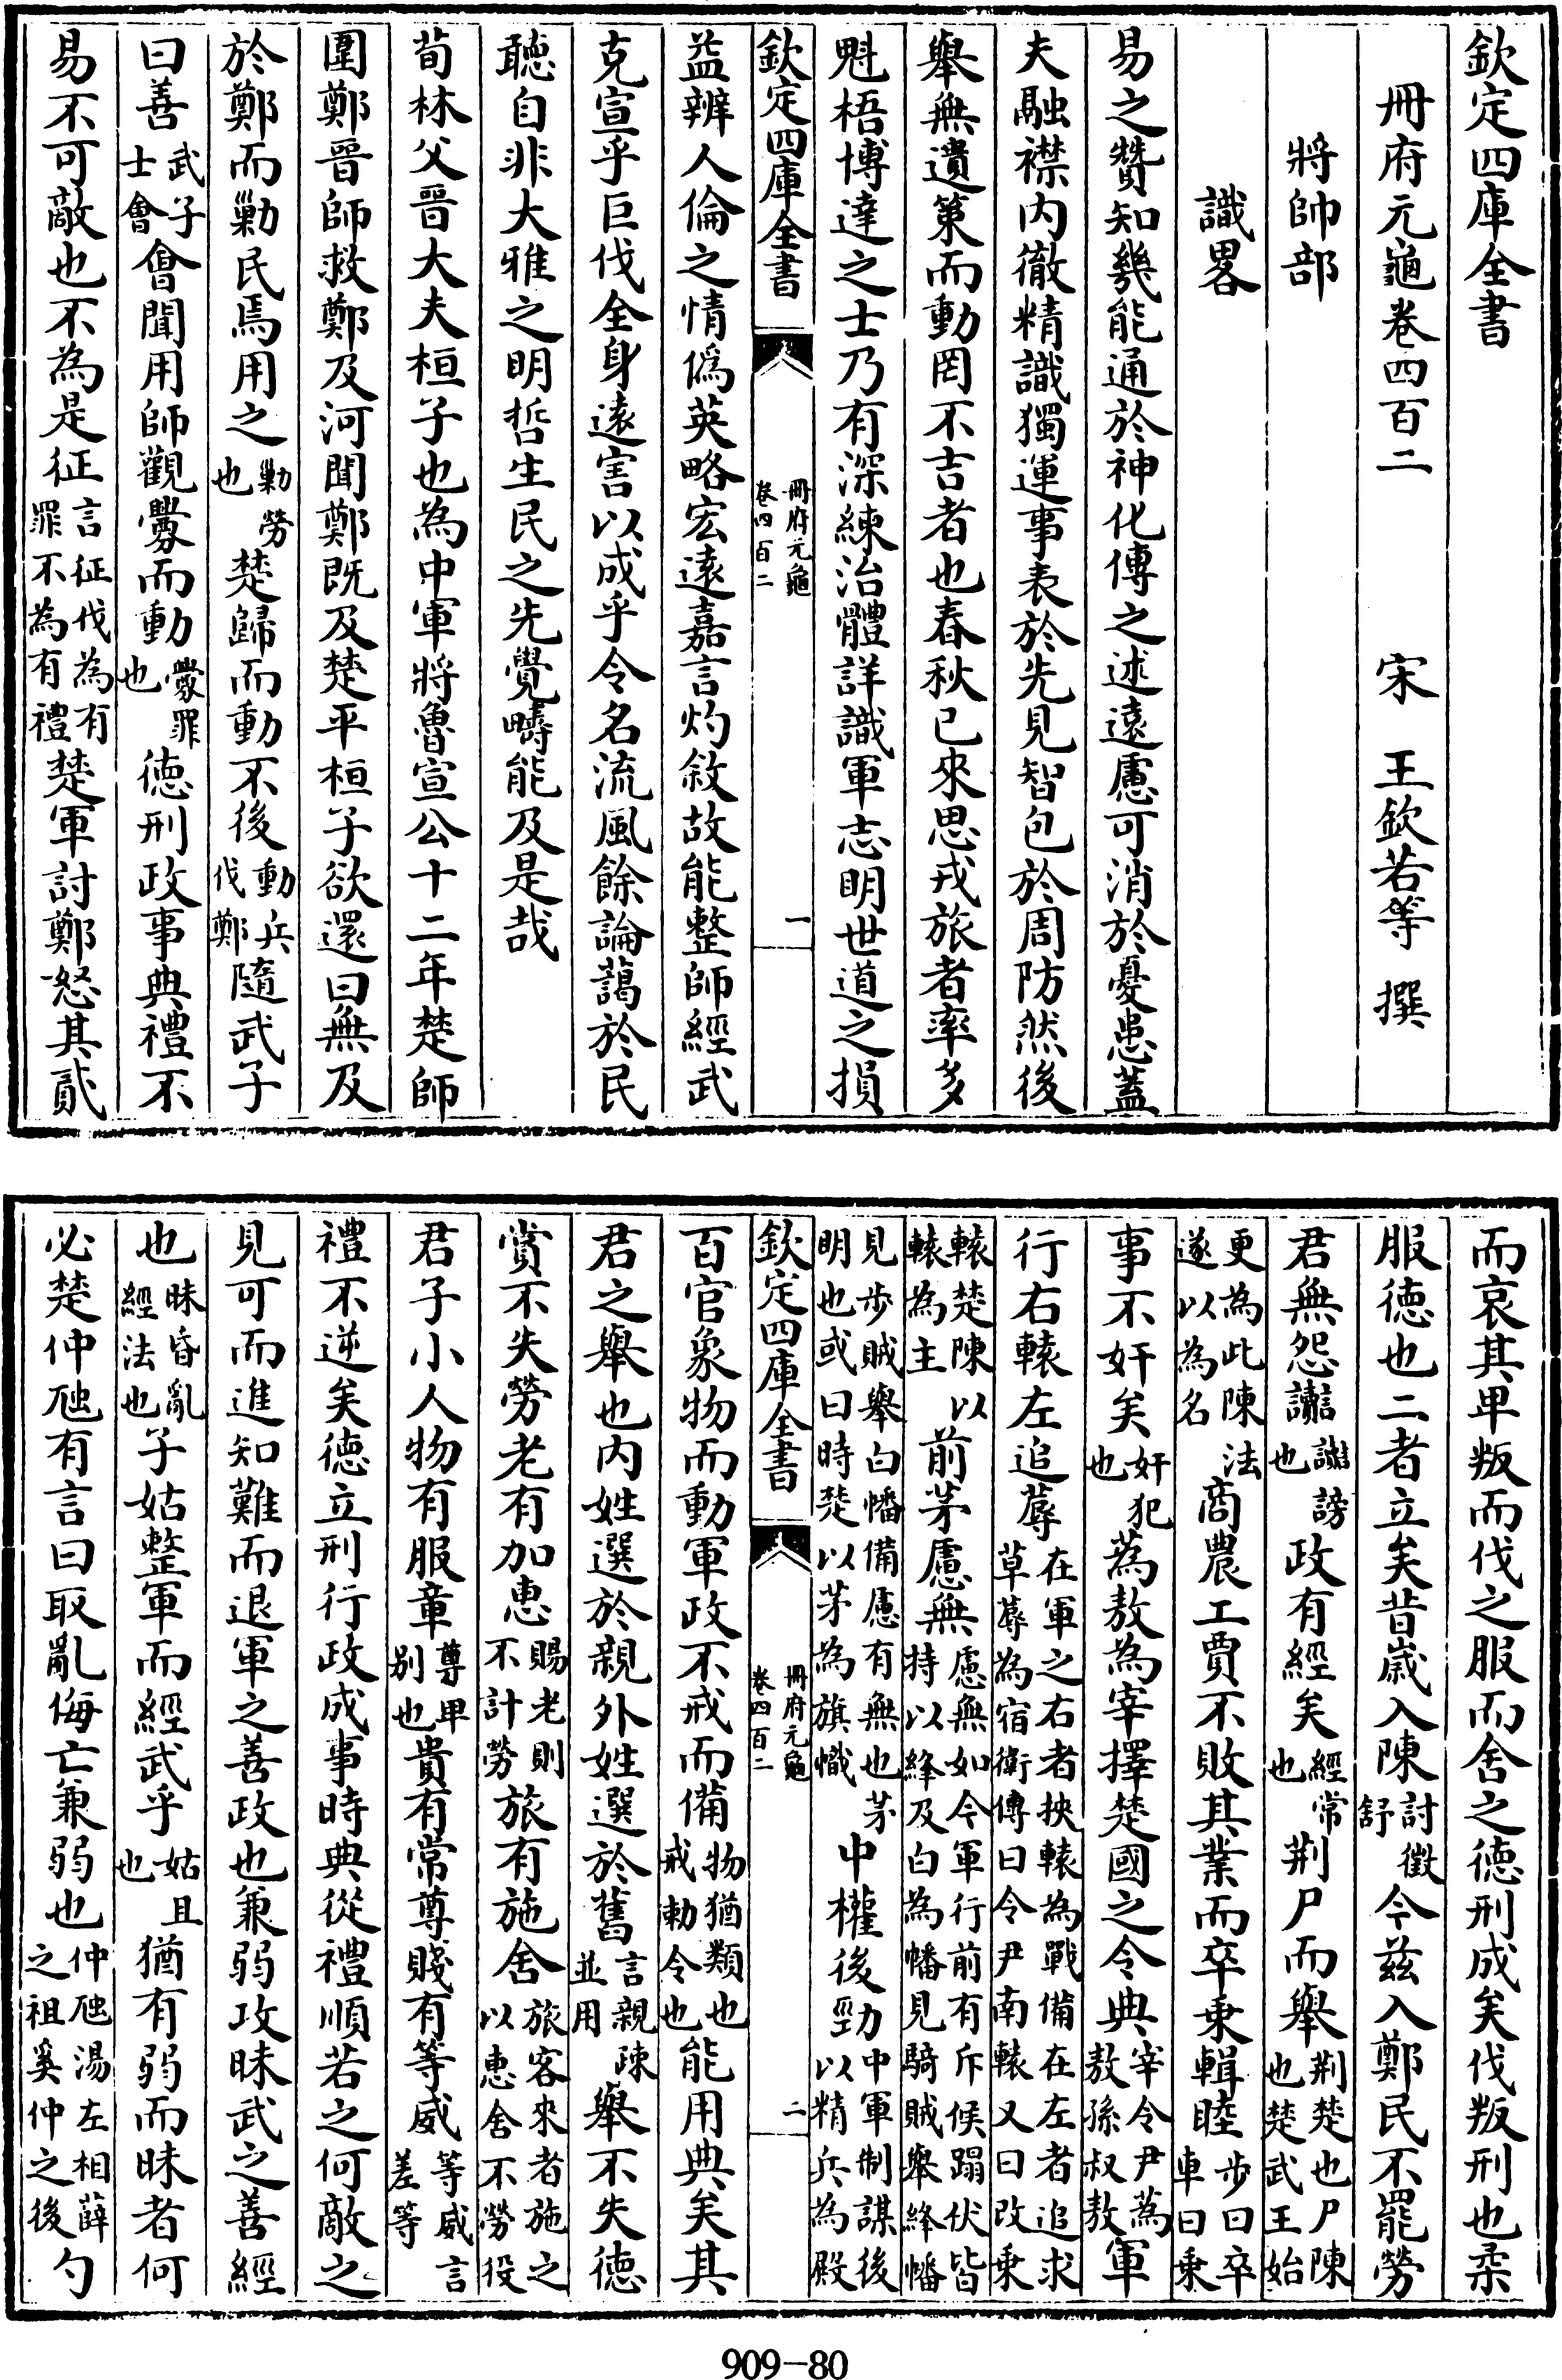 欽定四庫全書
冊府元龜卷四百二　宋　王欽若等　撰
將帥部
識畧
易之贊知幾能通於神化傳之述遠慮可消於憂患蓋
夫融襟内徹精識獨運事表於先見智包於周防然後
舉無遺策而動罔不吉者也春秋已來思戎旅者率多
魁梧博達之士乃有深練治體詳識軍志明世道之損
欽定四庫全書　冊府元龜卷四百二　一
益辨人倫之情僞英略宏遠嘉言灼敘故能整師經武
克宣乎巨伐全身遠害以成乎令名流風餘論藹於民
聽自非大雅之明哲生民之先覺疇能及是哉
荀林父晉大夫桓子也為中軍將魯宣公十二年楚師
圍鄭晉師救鄭及河聞鄭既及楚平桓子欲還曰無及
於鄭而勦民焉用之勦勞也楚歸而動不後動兵伐鄭隨武子
曰善武子士會會聞用師觀釁而動釁罪也德刑政事典禮不
易不可敵也不為是征言征伐為有罪不為有禮楚軍討鄭怒其貳
而哀其卑叛而伐之服而舍之德刑成矣伐叛刑也柔
服德也二者立矣昔歲入陳討徵舒今兹入鄭民不罷勞
君無怨讟讟謗也政有經矣經常也荆尸而舉荆楚也尸陳也楚武王始
更為此陳法遂以為名商農工賈不敗其業而卒乘輯睦步曰卒車曰乘
事不奸矣奸犯也蒍敖為宰擇楚國之令典宰令尹蒍敖孫叔敖軍
行右轅左追蓐在軍之右者挾轅為戰備在左者追求草蓐為宿衛傳曰令尹南轅又曰改乘
轅楚陳以轅為主前茅慮無慮無如今軍行前有斥候蹋伏皆持以絳及白為幡見騎賊舉絳幡
見步賊舉白幡備慮有無也茅明也或曰時楚以茅為旗幟中權後勁中軍制謀後以精兵為殿
欽定四庫全書　冊府元龜卷四百二　二
百官象物而動軍政不戒而備物猶類也戒勅令也能用典矣其
君之舉也内姓選於親外姓選於舊言親疎並用舉不失德
賞不失勞老有加惠賜老則不計勞旅有施舍旅客來者施之以惠舍不勞役
君子小人物有服章尊卑别也貴有常尊賤有等威等威言差等
禮不逆矣德立刑行政成事時典從禮順若之何敵之
見可而進知難而退軍之善政也兼弱攻昧武之善經
也昧昏亂經法也子姑整軍而經武乎姑且也猶有弱而昧者何
必楚仲虺有言曰取亂侮亡兼弱也仲虺湯左相薛之祖奚仲之後勺
909-80